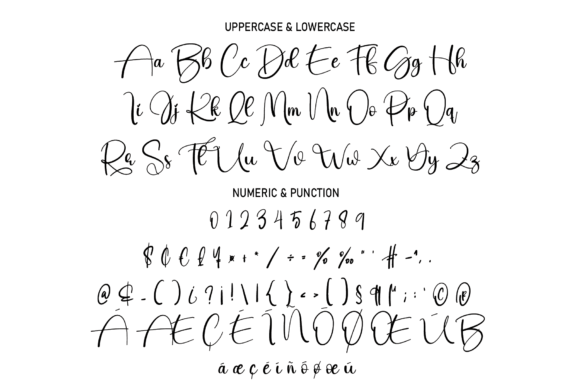 UPPERCASE & LOWERCASE
Aa Bb Cc Dd Ee Ff Gg Hh
Ii Jj Kk Ll Mm Nn Oo Pp Qq
Rr Ss Tt Uu Vv Ww Xx Yy Zz
NUMERIC & PUNCTION
0 1 2 3 4 5 6 7 8 9
$ ¢ € £ ¥ * + ° / ÷ = % ‰ " ' # - ^ , .
@ & - ( ) ¿ ? ¡ ! \ | { } < > [ ] § ¶ ; : © ®
Á Æ Ç É Í Ñ Ó Ø Œ Ú ß
á æ ç é í ñ ó ø œ ú